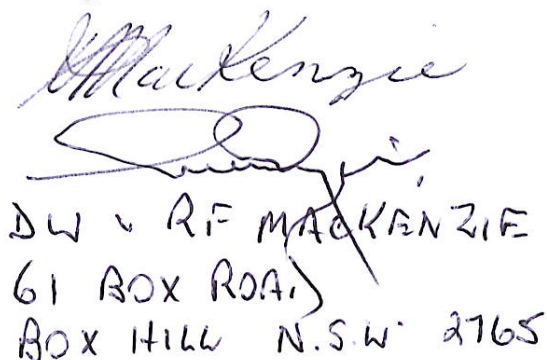 MacKenzie
DW & RF MACKENZIE
61 BOX ROAD
BOX HILL N.S.W. 2765